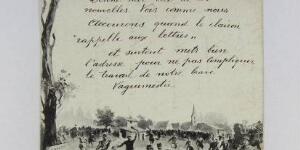 nouvelles. Vois comme nous
accourons quand le clairon
"rappelle aux lettres"
et surtout mets bien
l'adresse pour ne pas compliquer
le travail de notre brave
Vaguemestre.